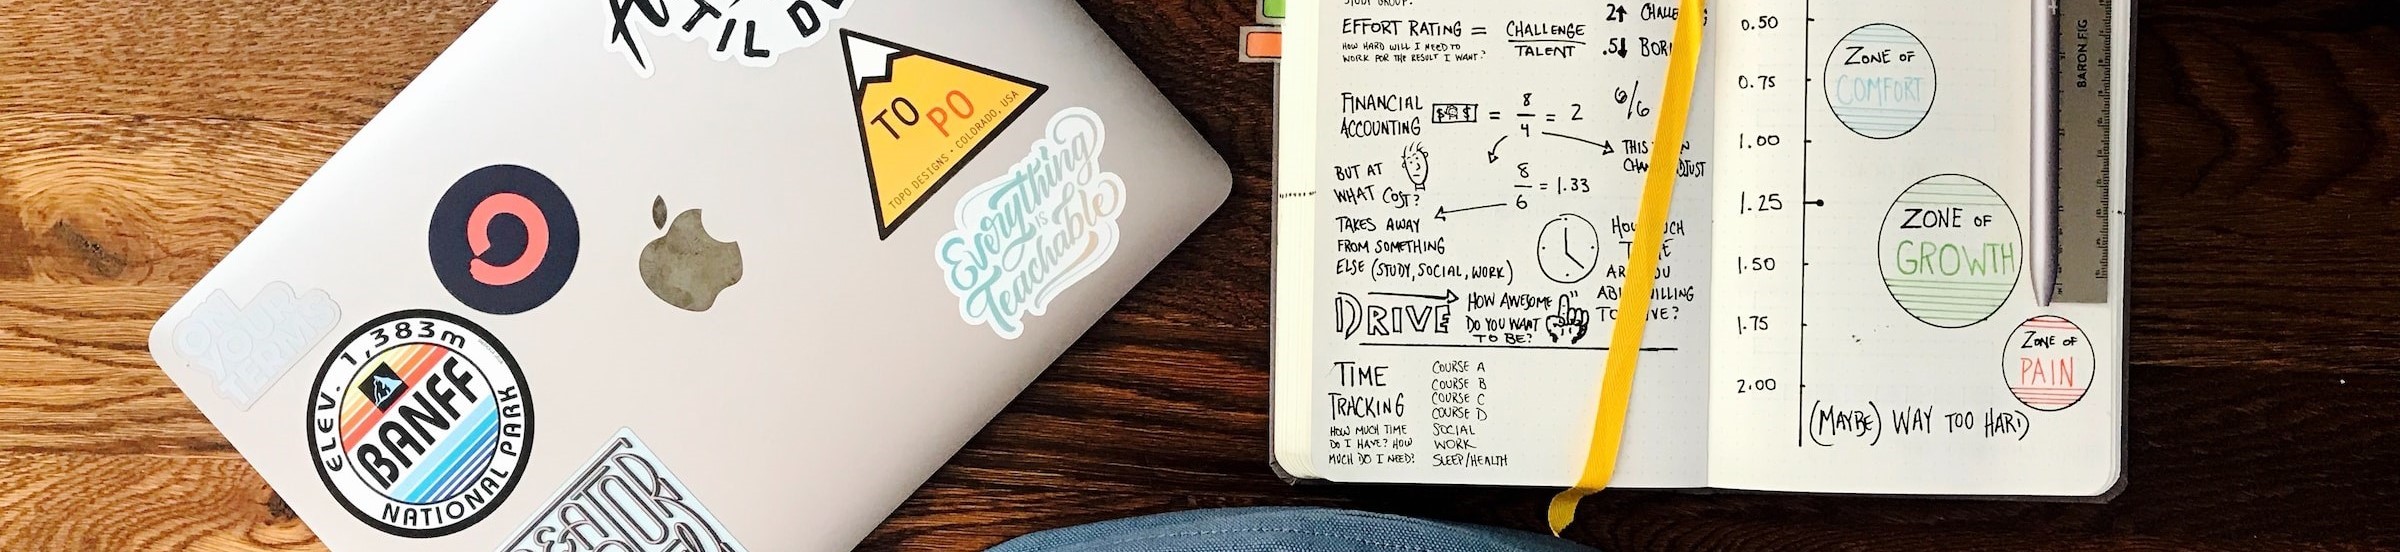 TIL D
TO
PO
TOPO DESIGNS · COLORADO, USA
Everything
IS
Teachable
ON
YOUR
TERMS
ELEV. 1,383m
BANFF
NATIONAL PARK
STUDY GROUP?
EFFORT RATING = CHALLENGE
TALENT
HOW HARD WILL I NEED TO
WORK FOR THE RESULT I WANT?
2↑
.5↓
FINANCIAL
ACCOUNTING $$ = 8/4 = 2
6/6
THIS
BUT AT
WHAT COST?
8/6 = 1.33
TAKES AWAY
FROM SOMETHING
ELSE (STUDY, SOCIAL, WORK)
DRIVE
HOW AWESOME
DO YOU WANT
TO BE?
TIME
TRACKING
HOW MUCH TIME
DO I HAVE? HOW
MUCH DO I NEED?
COURSE A
COURSE B
COURSE C
COURSE D
SOCIAL
WORK
SLEEP/HEALTH
0.50
0.75
1.00
1.25
1.50
1.75
2.00
ZONE OF
COMFORT
ZONE OF
GROWTH
ZONE OF
PAIN
(MAYBE) WAY TOO HARD
BARON FIG